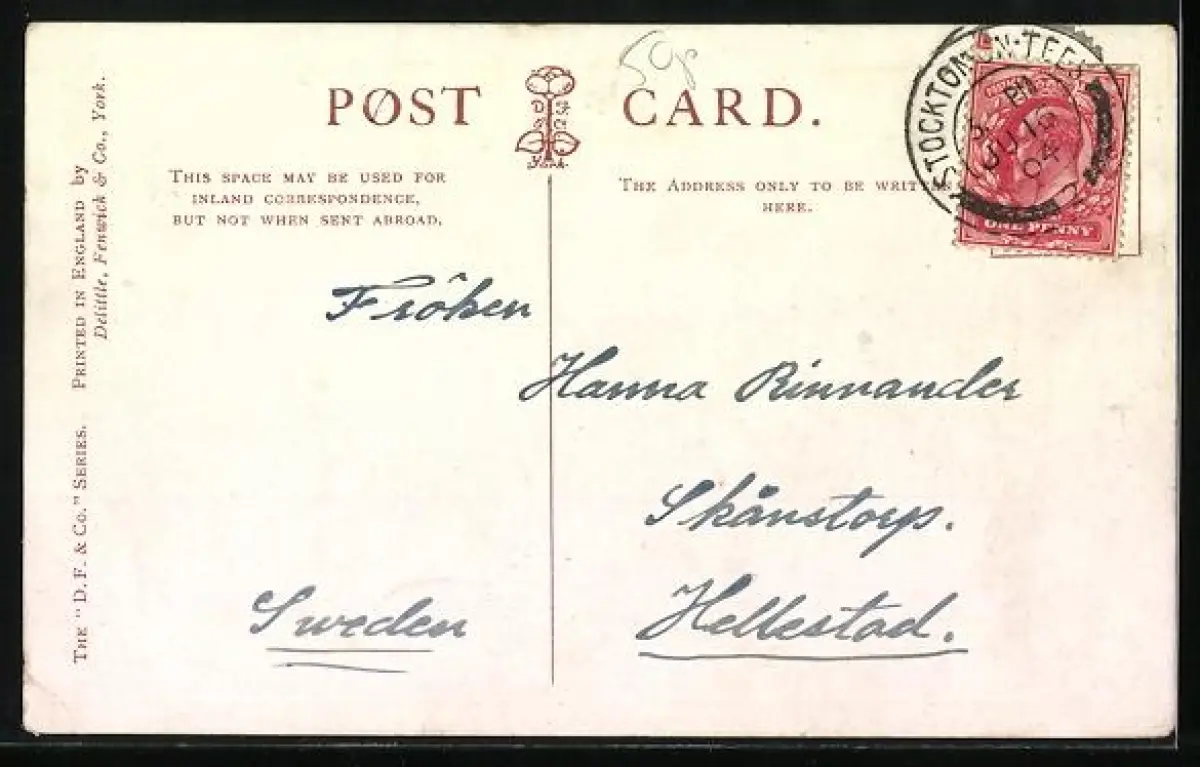 59p
POST CARD.
D F & Co
York.
THIS SPACE MAY BE USED FOR
INLAND CORRESPONDENCE,
BUT NOT WHEN SENT ABROAD.
THE ADDRESS ONLY TO BE WRITTEN
HERE.
STOCKTON-ON-TEES
PM
JU 10
04
ONE PENNY
Fröken
Hanna Rinnander
Skånstorp.
Hellestad.
Sweden
THE "D. F. & CO." SERIES. PRINTED IN ENGLAND by
Delittle, Fenwick & Co., York.